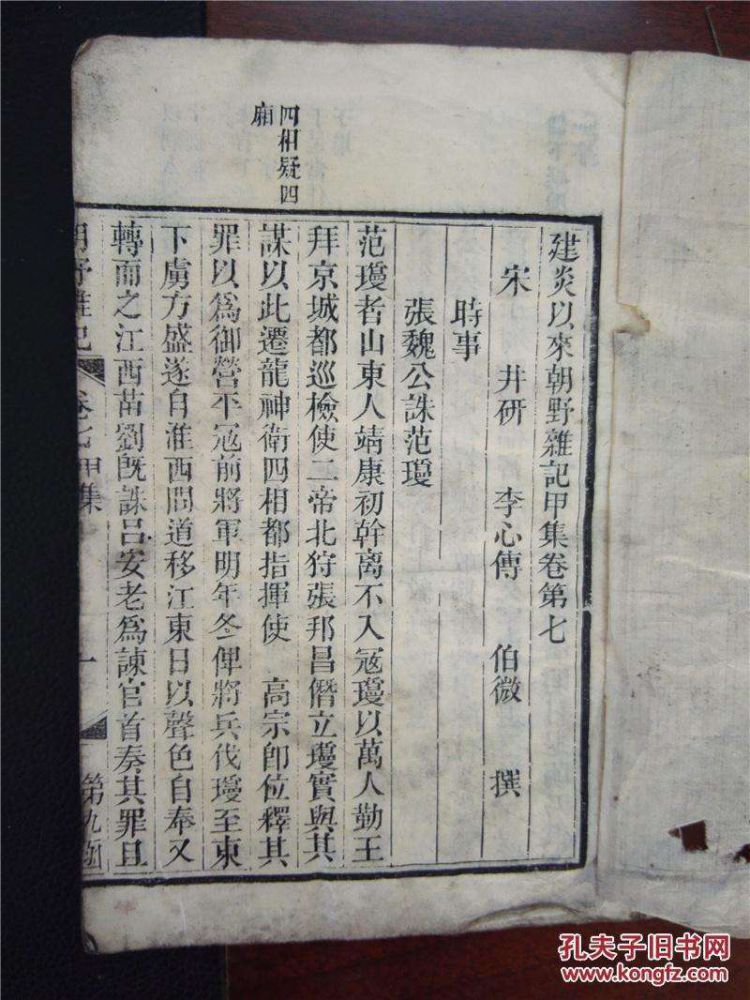 四相疑四
廂
建炎以來朝野雜記甲集卷第七
宋 井研 李心傳 伯微 撰
時事
張魏公誅范瓊
范瓊者山東人靖康初幹离不入冦瓊以萬人勤王
拜京城都巡檢使二帝北狩張邦昌僭立瓊實與其
謀以此遷龍神衛四相都指揮使 高宗卽位釋其
罪以爲御營平冦前將軍明年冬俾將兵伐瓊至東
下虜方盛遂自淮西問道移江東日以聲色自奉又
轉而之江西苗劉旣誅吕安老爲諫官首奏其罪且
朝野雜記 卷七甲集 一 第九函
孔夫子旧书网
www.kongfz.com